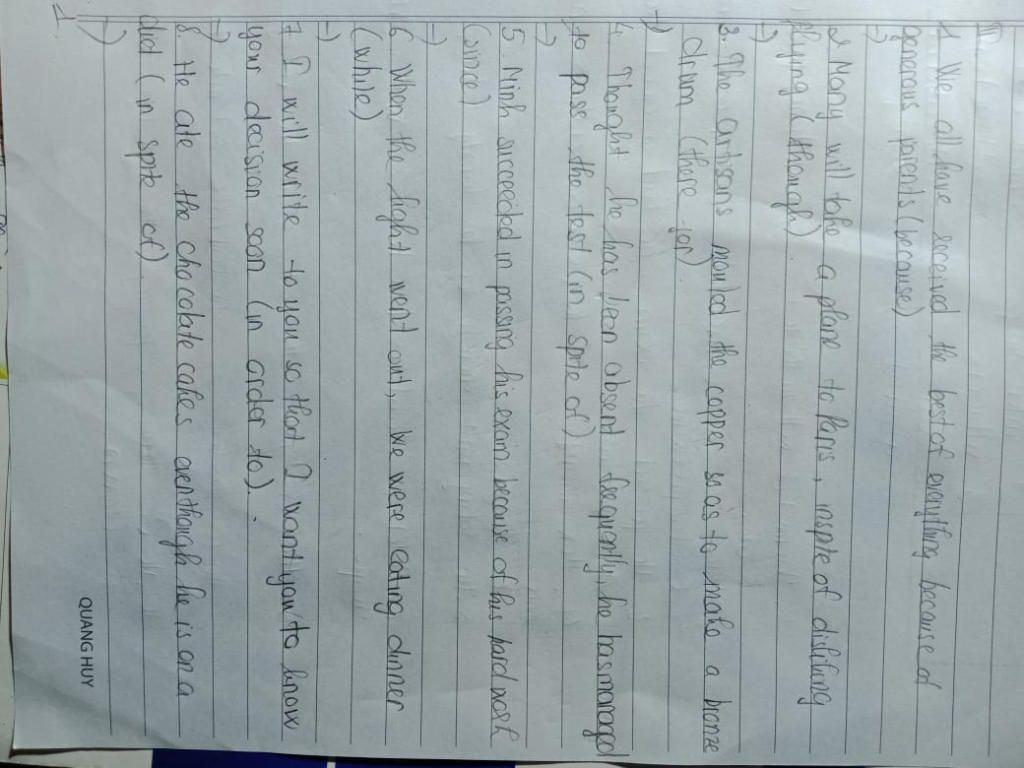 II
1 We all have received the best of everything because of
generous prents (because)
->
2 Mary will take a plane to Paris, inspite of disliking
flying (though)
->
3. The artisons mouled the copper so as to make a bronze
drum (there for)
->
4. Thought he has been absent frequently, he has managed
to pass the test (in spite of)
->
5. Minh succeeded in passing his exam because of his hard work
(since)
->
6. When the light went out, we were eating dinner
(while)
->
7. I will write to you so that I want you to know
your decision soon (in order to).
->
8 He ate the chocolate cakes eventhough he is on a
diet (in spite of)
->
QUANG HUY